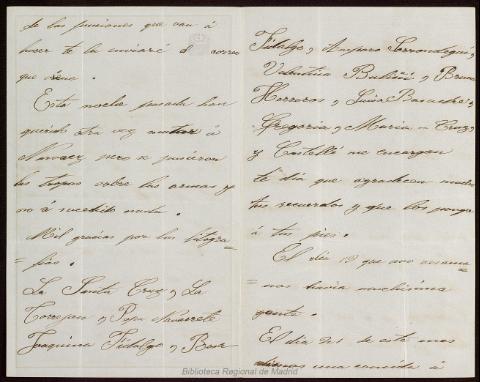 de las funciones que van á
hacer te la enviaré el correo
que viene.
Esta noche pasada han
querido otra vez matar á
Narvaez, pero se pusieron
las tropas sobre las armas y
no á sucedido nada.
Mil gracias por las litogra=
=fias.
La Santa Cruz, y La
Torrejon y Pepa Navarrete
Joaquina Fidalgo, y
Fidalgo, Amparo
Valentina y Bruna
Herreros, y Luisa
Gregoria, y Maria la Cruz,
y Castellá me encargan
te diga que agradecen mucho
tus recuerdos y que los ponga
á tus pies.
El dia 13 que nos
nos habia muchisima
gente.
El dia de este mes
una comida á
Biblioteca Regional de Madrid